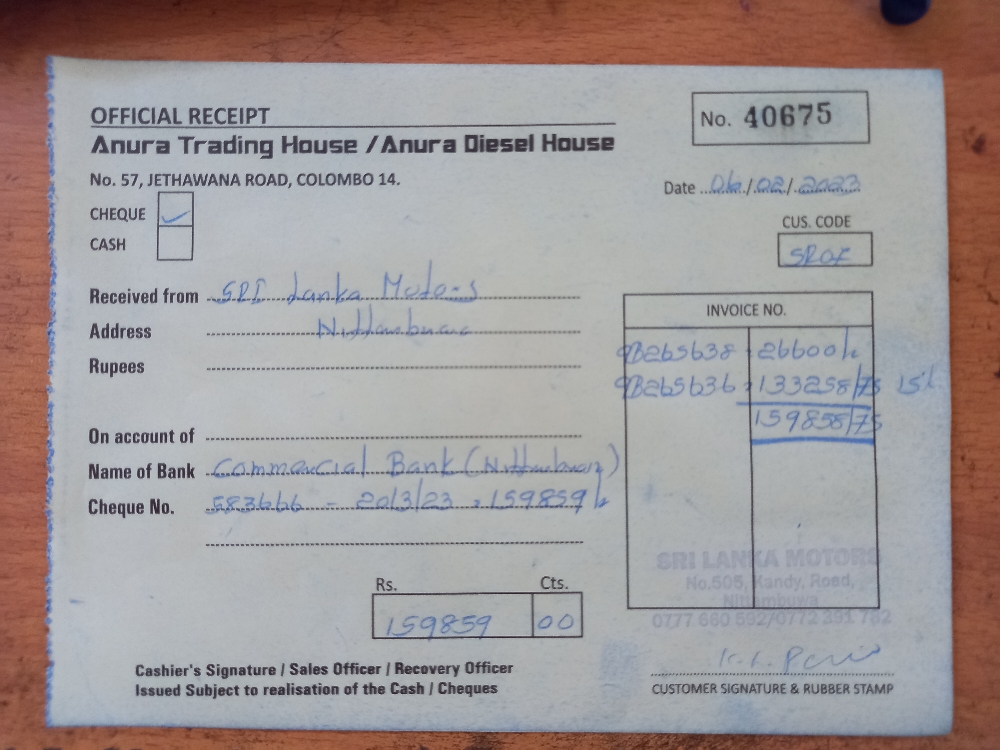 OFFICIAL RECEIPT
Anura Trading House / Anura Diesel House
No. 57, JETHAWANA ROAD, COLOMBO 14.
No. 40675
Date 06/02/2023
CHEQUE ✓
CASH
CUS. CODE
Received from SRI Lanka Motors
Address Nittambuwa
Rupees
On account of
Name of Bank Commercial Bank (Nittambuwa)
Cheque No. 583666 - 20/3/23 159859/-
INVOICE NO.
9B265638 26600/-
9B265636 133258/75 15%
159858/75
Rs. Cts.
159859 00
SRI LANKA MOTORS
No.505, Kandy, Road,
Nittambuwa
0777 660 592/0772 391 782
Cashier's Signature / Sales Officer / Recovery Officer
Issued Subject to realisation of the Cash / Cheques
CUSTOMER SIGNATURE & RUBBER STAMP